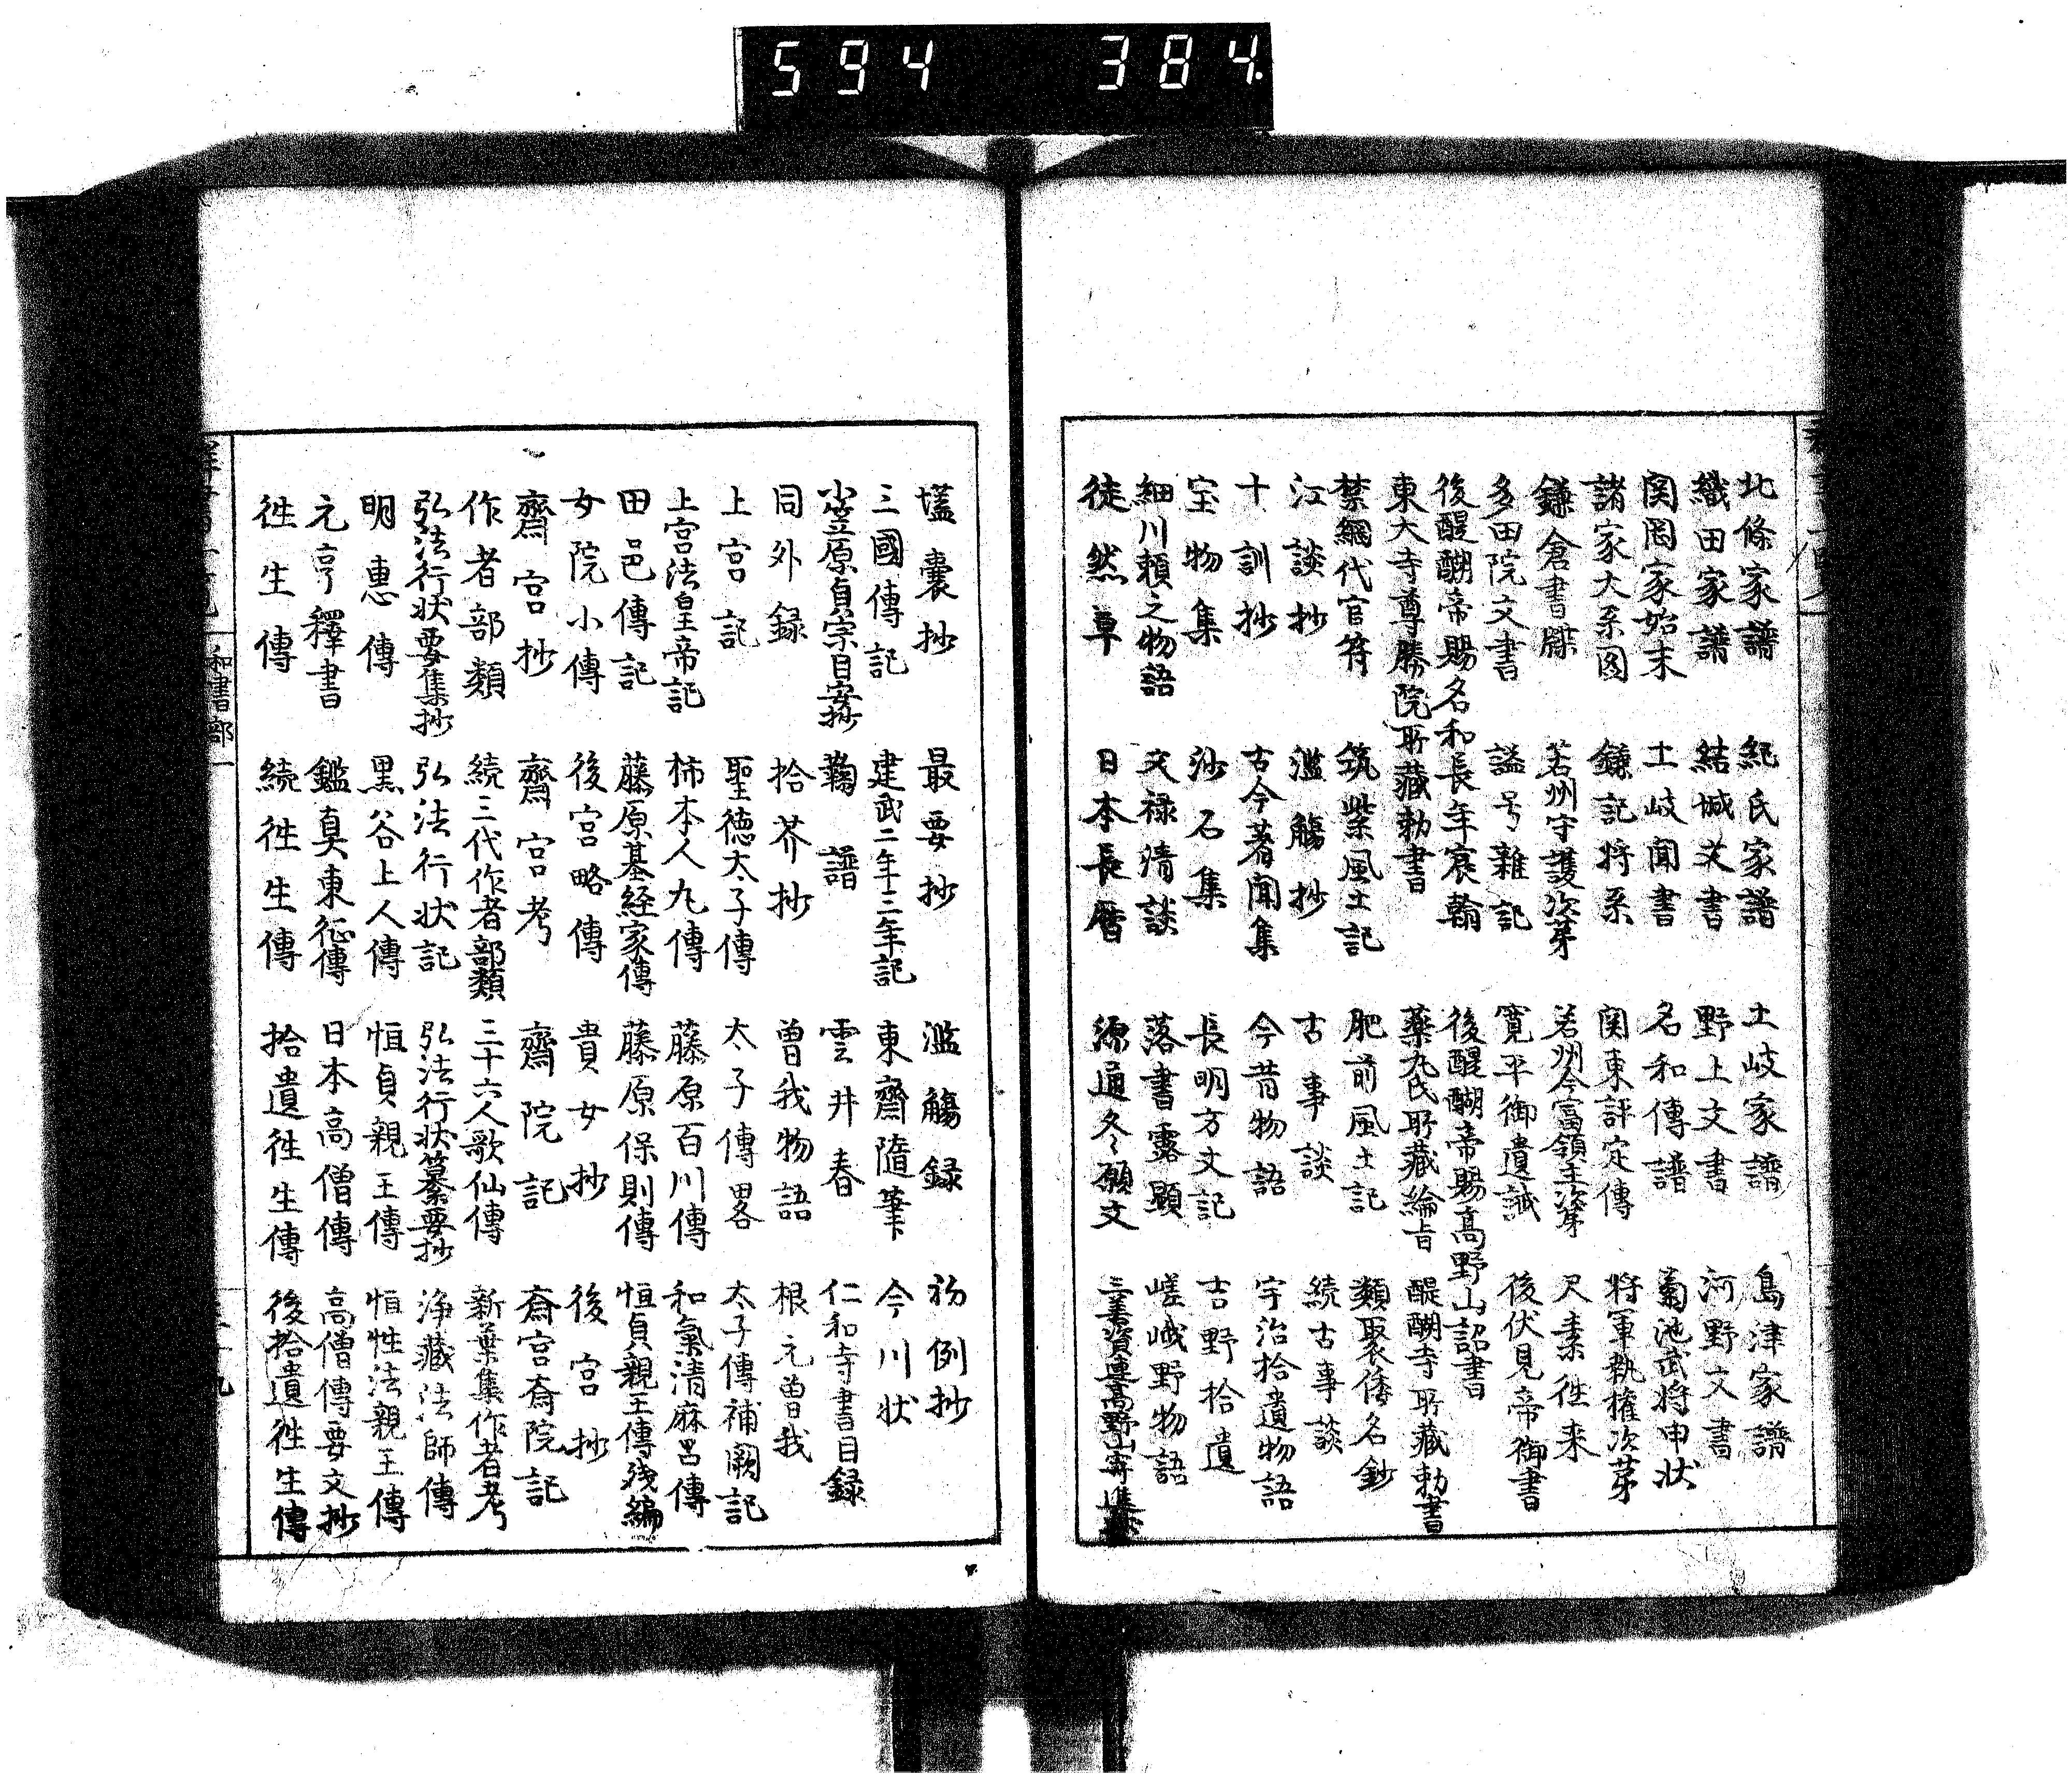 594 384.
北條家譜 紀氏家譜 土岐家譜 島津家譜
織田家譜 結城文書 野上文書 河野文書
関岡家始末 土岐聞書 名和傳譜 菊池武将申状
諸家大系図 鎌記将系 関東評定傳 将軍執權次第
鎌倉書牒 若州守護次第 若州今富領主次第 尺素徃来
多田院文書 謚号雜記 寛平御遺誡 後伏見帝御書
後醍醐帝賜名和長年宸翰 後醍醐帝賜高野山詔書
東大寺尊勝院所藏勅書 藥丸氏所藏綸旨 醍醐寺所藏勅書
禁網代官符 筑紫風土記 肥前風土記 類聚倭名鈔
江談抄 濫觴抄 古事談 続古事談
十訓抄 古今著聞集 今昔物語 宇治拾遺物語
宝物集 沙石集 長明方丈記 吉野拾遺
細川頼之物語 文禄清談 落書露顕 嵯峨野物語
徒然草 日本長暦 源通冬願文 三善資連高野山寄進
壒嚢抄 最要抄 濫觴録 初例抄
三國傳記 建武二年三年記 東齋隨筆 今川状
小笠原貞宗目安抄 鞠譜 雲井春 仁和寺書目録
同外録 拾芥抄 曽我物語 根元曽我
上宮記 聖徳太子傳 太子傳畧 太子傳補闕記
上宮法皇帝記 柿本人丸傳 藤原百川傳 和氣清麻呂傳
田邑傳記 藤原基経家傳 藤原保則傳 恒貞親王傳残編
女院小傳 後宮略傳 貴女抄 後宮抄
齋宮抄 齋宮考 齋院記 斎宮斎院記
作者部類 続三代作者部類 三十六人歌仙傳 新葉集作者考
弘法行状要集抄 弘法行状記 弘法行状纂要抄 浄藏法師傳
明惠傳 黒谷上人傳 恒貞親王傳 恒性法親王傳
元亨釋書 鑑真東征傳 日本高僧傳 高僧傳要文抄
徃生傳 続徃生傳 拾遺徃生傳 後拾遺徃生傳
和書部一